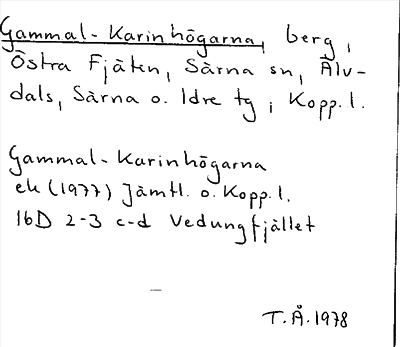 Gammal-Karinhögarna, berg i
Östra Fjäten, Särna sn, Älv-
dals, Särna o. Idre tg, Kopp. l.
Gammal-Karinhögarna
ek (1977) Jämtl. o. Kopp. l.
16D 2-3 c-d Vedungfjället
T.Å. 1978